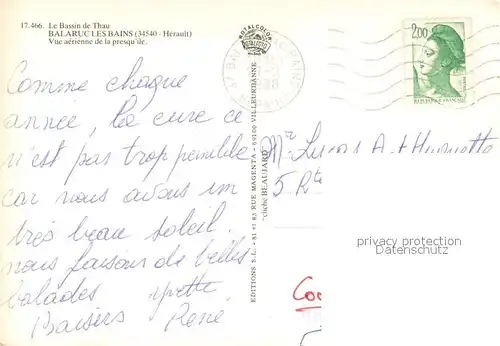 17.466. Le Bassin de Thau
BALARUC LES BAINS (34540 - Hérault)
Vue aérienne de la presqu'île.
Comme chaque
année, la cure ce
n'est pas trop penible
car nous avons un
très beau soleil.
nous faisons de belles
balades yvette
Baisers René
EDITIONS S.L. - 81 et 83 RUE MAGENTA - 69100 VILLEURBANNE
"cliché BEAUJARD"
ROYALCOLOR
2,00
REPUBLIQUE FRANÇAISE
Mr Lucas A et Huguette
5 Rte
privacy protection
Datenschutz